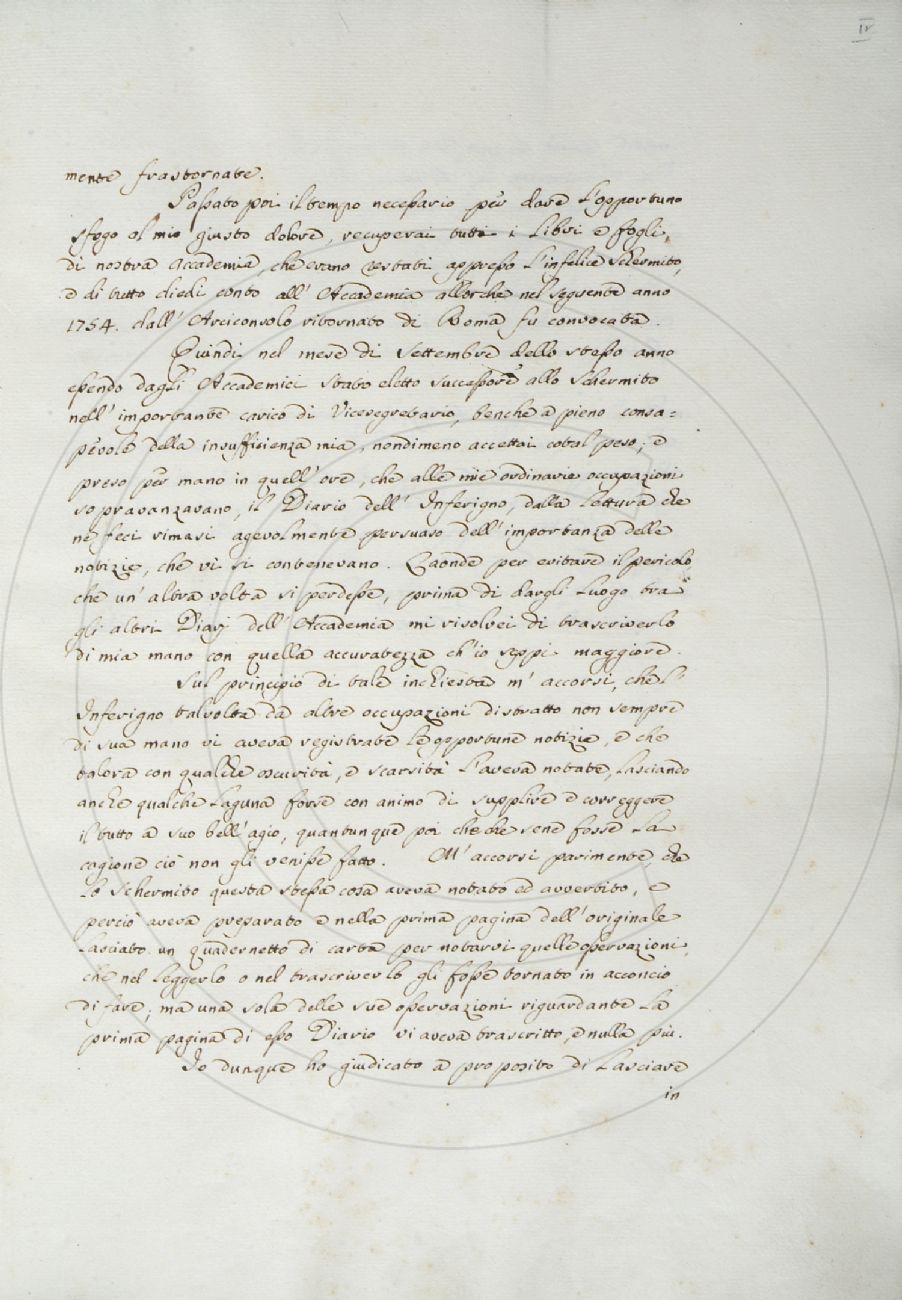 IV
mente frastornate.
Passato poi il tempo necessario per dare l'opportuno
sfogo al mio giusto dolore, recuperai tutti i Libri e fogli,
di nostra Accademia, che erano restati appresso l'infelice Schermito,
e di tutto diedi conto all' Accademia allorche nel seguente anno
1754. dall' Arciconsolo ritornato di Roma fu convocata.
Quindi nel mese di Settembre dello stesso anno
essendo dagli Accademici stato eletto successore allo Schermito
nell' importante carico di Vicesegretario, benche a pieno consa=
pevole della insufficienza mia, nondimeno accettai cotal peso; e
preso per mano in quell' ore, che alle mie ordinarie occupazioni
sopravanzavano, il Diario dell' Inferigno, dalla lettura che
ne feci rimasi agevolmente persuaso dell' importanza delle
notizie, che vi si contenevano. Laonde per evitare il pericolo
che un' altra volta si perdesse, prima di dargli luogo tra
gli altri Diarj dell' Accademia mi risolvei di trascriverlo
di mia mano con quella accuratezza ch' io seppi maggiore.
Sul principio di tale inchiesta m' accorsi, che l'
Inferigno talvolta da altre occupazioni distratto non sempre
di sua mano vi aveva registrate le opportune notizie, e che
talora con qualche oscurità, e scarsità l'aveva notate, lasciando
anche qualche laguna forse con animo di supplire e correggere
il tutto a suo bell' agio, quantunque poi che che sene fosse la
cagione ciò non gli venisse fatto. M' accorsi parimente che
lo Schermito questa stessa cosa aveva notato ed avvertito, e
perciò aveva preparato e nella prima pagina dell' originale
lasciato un quadernetto di carta per notarvi quelle osservazioni
che nel leggerlo o nel trascriverlo gli fosse tornato in acconcio
di fare; ma una sola delle sue osservazioni riguardante la
prima pagina di esso Diario vi aveva trascritto, e nulla più.
Io dunque ho giudicato a proposito di lasciare
in